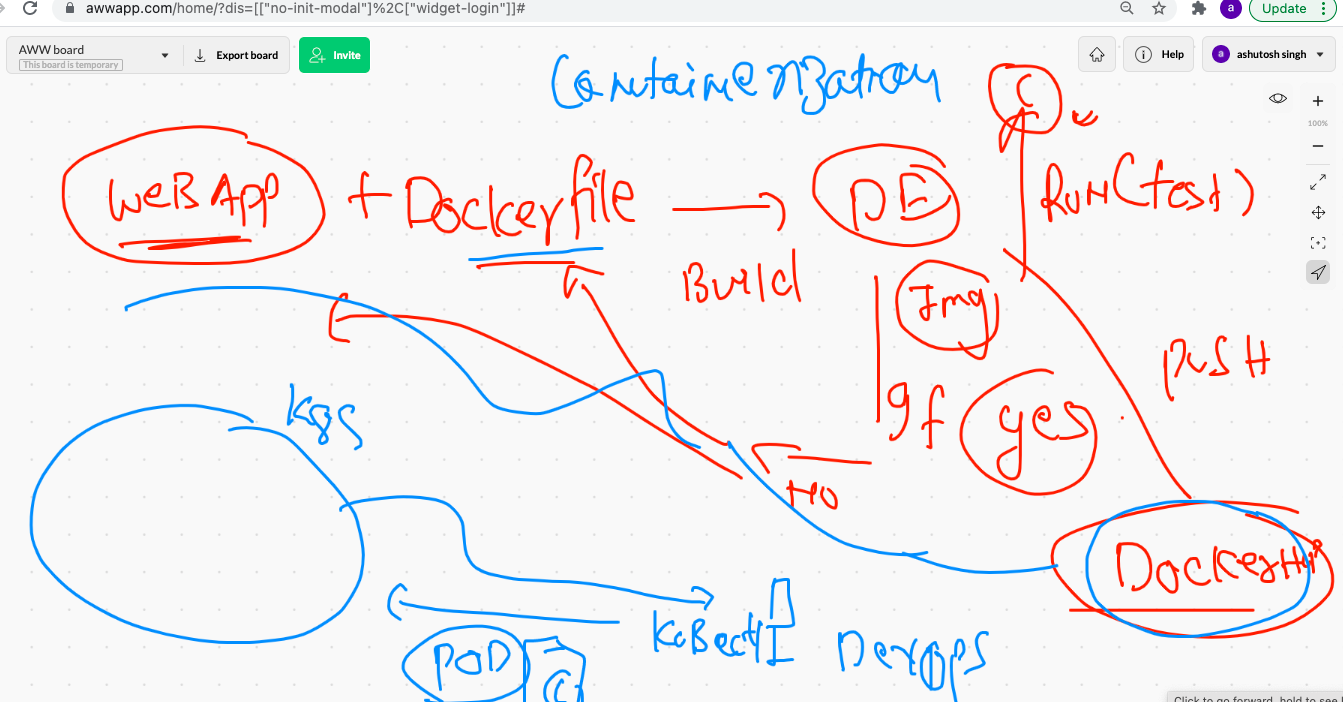 awwapp.com/home/?dis=[["no-init-modal"]%2C["widget-login"]]#
a
Update
AWW board
This board is temporary
Export board
Invite
Help
a
ashutosh singh
100%
Containerization
C
WeB App + Dockerfile
DE
RUN(test)
Build
Img
PUSH
If yes
NO
K8S
DockerHub
Kubectl
DevOps
POD
C
Click to go forward, hold to see